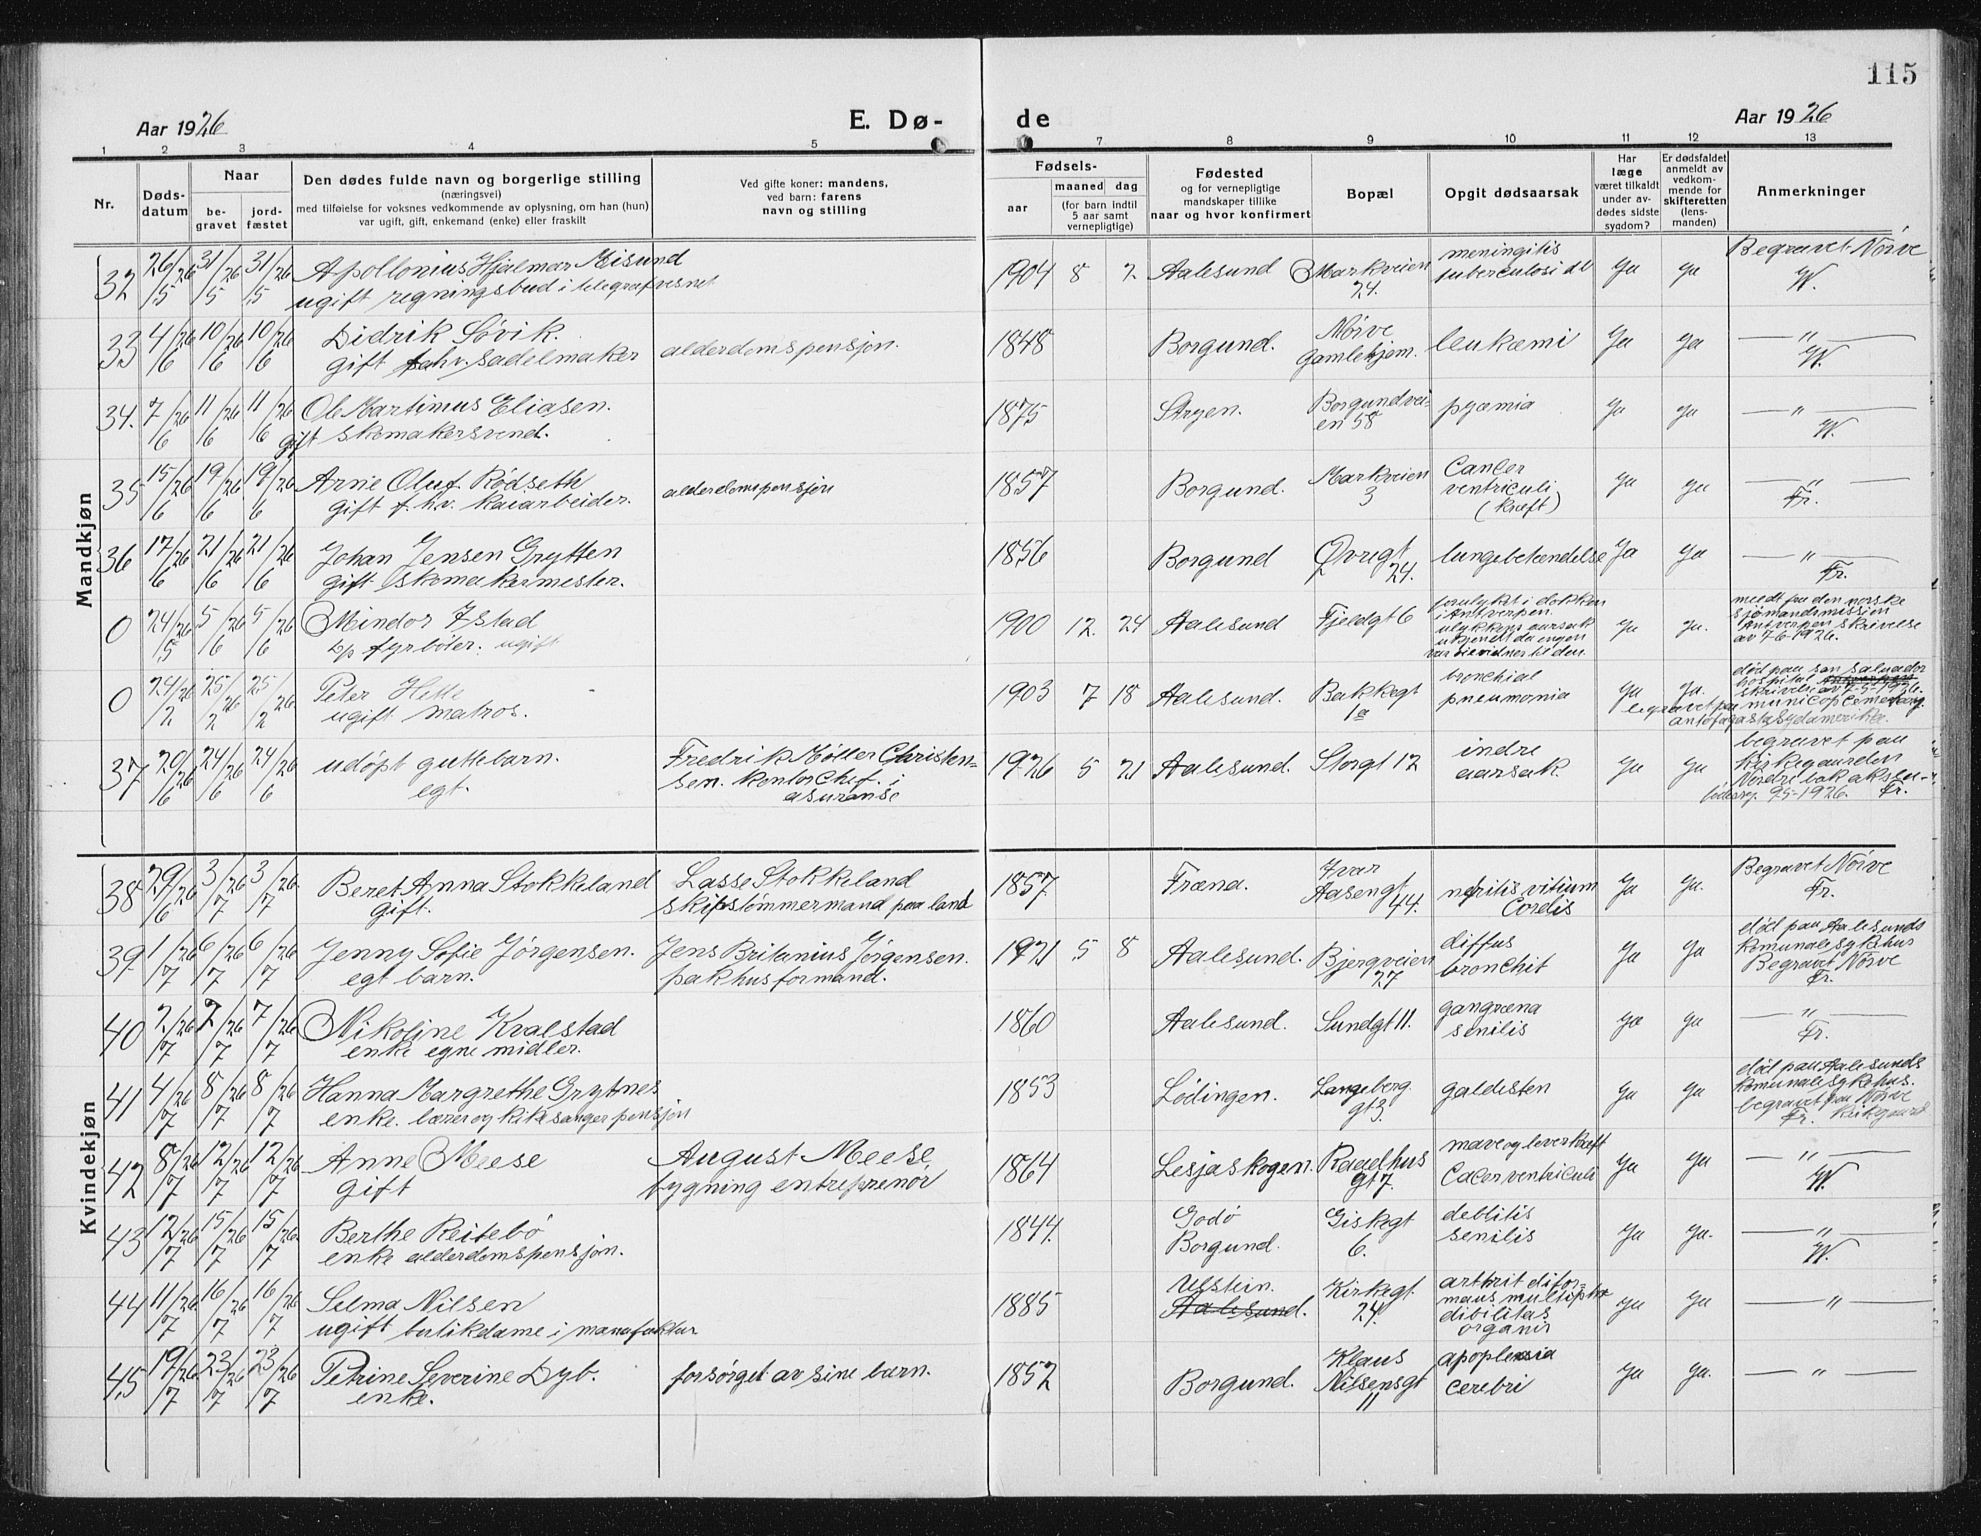 115
Aar 1926
E. Dø-
de
Aar 1926
1 2 3 4 5 7 8 9 10 11 12 13
Nr.
Døds-
datum
Naar
be-
gravet
jord-
fæstet
Den dødes fulde navn og borgerlige stilling
(næringsvei)
med tilføielse for voksnes vedkommende av oplysning, om han (hun)
var ugift, gift, enkemand (enke) eller fraskilt
Ved gifte koner: mandens,
ved barn: farens
navn og stilling
Fødsels-
aar
maaned dag
(for barn indtil
5 aar samt
vernepligtige)
Fødested
og for vernepligtige
mandskaper tillike
naar og hvor konfirmert
Bopæl
Opgit dødsaarsak
Har
læge
været tilkaldt
under av-
dødes sidste
sygdom?
Er dødsfaldet
anmeldt av
vedkom-
mende for
skifteretten
(lens-
manden)
Anmerkninger
Mandkjøn
32 26/5 26 31/5 26 31/5 26 Apollonius Hjalmar Misund
ugift regningsbud i telegrafvesnet
1904 8 2 Aalesund Markveien
24.
meningitis
tuberculosi
ja ja Begravet Nørve
W.
33 4/6 26 10/6 26 10/6 26 Didrik Søvik.
gift fahv. sadelmaker
alderdomspensjon.
1848 Borgund. Nørve
gamlehjem.
leukæmi ja ja — " —
W.
34. 7/6 26 11/6 26 11/6 26 Ole Martinus Eliasen.
gift skomakersvend.
1875 Stryen. Borgundvei-
en 58
pyæmia ja ja — " —
W.
35 15/6 26 19/6 26 19/6 26 Arne Oluf Rødseth
gift f. hv. kaiarbeider.
alderdomspensjon
1857 Borgund. Markveien
3
Cancer
ventriculi
(kræft)
ja ja — " —
Fr.
36 17/6 26 21/6 26 21/6 26 Johan Jensen Grytten
gift skomakermester.
1856 Borgund Øvregt
24.
lungebetændelse ja ja — " —
Fr.
0 24/5 26 5/6 26 5/6 26 Mindor Istad
fyrbøter. ugift
1900 12. 24 Aalesund Fjeldgt 6
forulyket i dokken
i Antverpen
ulykkens aarsak
ukjendt da ingen
var vidner til den.
ja ja.
medt fra den norske
sjømandsmission
Antverpen skrivelse
av 7-6-1926.
0 24/2 26 25/2 26 25/2 26 Peter Hette
ugift matros.
1903 7 18 Aalesund. Bakkegt
1a
bronchial
pneumonia
ja ja.
død paa san salvador
hospital
skrivelse av 7-5-1926.
begravet paa
antofagasta sydamerika.
37 20/6 26 24/6 26 24/6 26 udøpt guttebarn.
egt.
Fredrik Møller Christen-
sen. kontorchef i
asuranse
1926 5 21 Aalesund. Storgt 12 indre
aarsak.
ja ja
begravet paa
kirkegaarden
Nordre
Fr.
Kvindekjøn
38 29/6 26 3/7 26 3/7 26 Beret Anna Stokkeland
gift.
Lasse Stokkeland
skipstømmermand paa land
1857. Fræna. Ivar
Aasengt
44.
nefritis vitium
Cordis
ja ja. Begravet Nørve
Fr.
39. 1/7 26 6/7 26 6/7 26 Jenny Sofie Jørgensen.
egt barn.
Jens Britanius Jørgensen.
pakhusformand.
1921 5 8 Aalesund. Bjergveien
27
diffus
bronchit
ja ja
død paa Aalesunds
komunale sykehus
Begravet Nørve
Fr.
40 2/7 26 7/7 26 7/7 26 Nikoline Kvalstad
enke egne midler.
1860 Aalesund. Sundgt 11. gangræna
senilis
ja ja — " —
Fr.
41 4/7 26 8/7 26 8/7 26 Hanna Margrethe Grytnes
enke. lærer og kirkesanger pensjon
1853 Lødingen. Langeberg
gt 3.
galdesten ja ja
død paa Aalesunds
komunale sykehus.
begravet paa Nørve
Fr. kirkegaard
42 8/7 26 12/7 26 12/7 26 Anne Meese
gift
August Meese
bygning entreprenør
1864 Lesjaskogen. Raadhus
gt 7.
mave og leverkræft
Cacer ventriculi
ja ja — " —
W.
43 12/7 26 15/7 26 15/7 26 Berthe Reitebø
enke alderdomspensjon.
1844. Godø
Borgund.
Giskegt
6.
deblitis
senilis
ja ja. — " —
W.
44 11/7 26 16/7 26 16/7 26 Selma Nilsen
ugift butikdame i manufaktur
1885 Ulstein.
Aalesund.
Kirkegt.
24.
artrit difor-
mans multiplex
dibilitas
organis
ja ja — " —
45 19/7 26 23/7 26 23/7 26 Petrine Severine Dyb.
enke.
forsørget av sine barn.
1852 Borgund. Klaus
Nilsensgt
11
apoplexia
cerebri
ja ja. — " —